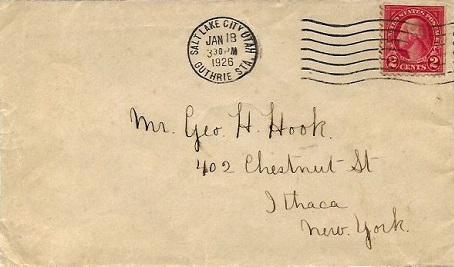 SALT LAKE CITY, UTAH
JAN 18
3 30 PM
1926
GUTHRIE STA.
UNITED STATES POSTAGE
2 CENTS 2
Mr. Geo. H. Hook.
402 Chestnut St
Ithaca
New. York.